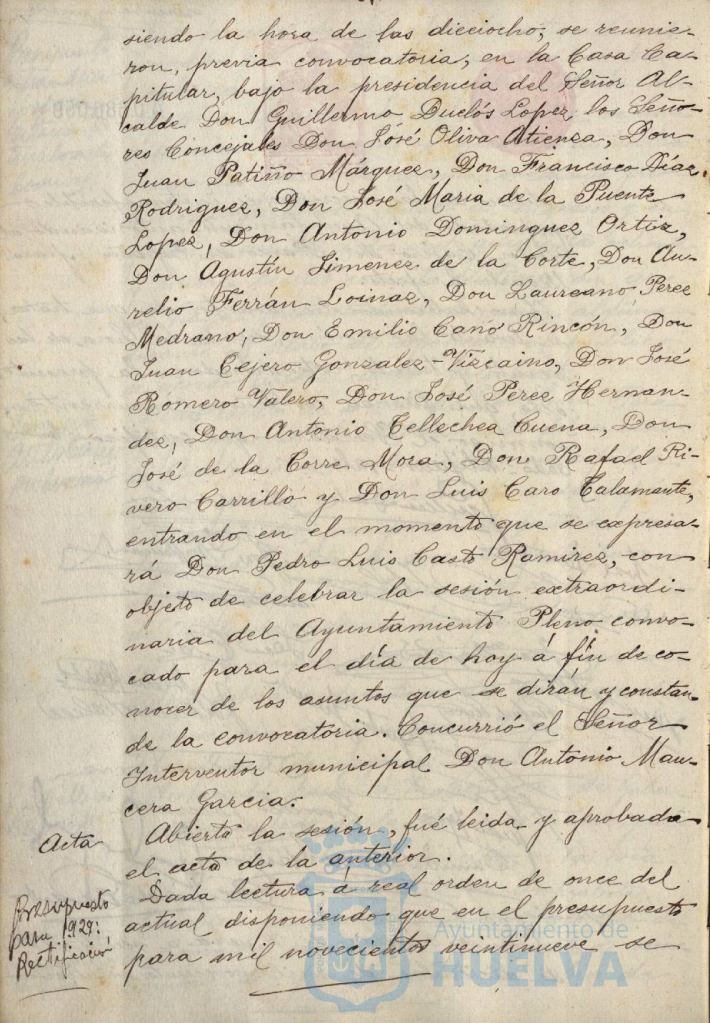 siendo la hora de las dieciocho, se reunie-
ron, previa convocatoria, en la Casa Ca-
pitular, bajo la presidencia del Señor Al-
calde Don Guillermo Duclós Lopez, los Seño-
res Concejales Don José Oliva Atienza, Don
Juan Patiño Márquez, Don Francisco Díaz
Rodriguez, Don José Maria de la Puente
Lopez, Don Antonio Dominguez Ortiz,
Don Agustín Jimenez de la Corte, Don Au-
relio Ferrán Loinaz, Don Laureano Perez
Medrano, Don Emilio Cano Rincón, Don
Juan Tejero Gonzalez-Vizcaino, Don José
Romero Valero, Don José Perez Hernan-
dez, Don Antonio Tellechea Cuena, Don
José de la Corre Mora, Don Rafael Ri-
vero Carrillo y Don Luis Caro Talamante,
entrando en el momento que se expresa-
rá Don Pedro Luis Casto Ramirez, con
objeto de celebrar la sesión extraordi-
naria del Ayuntamiento Pleno convo-
cado para el día de hoy á fín de co-
nocer de los asuntos que se dirán y constan
de la convocatoria. Concurrió el Señor
Interventor municipal Don Antonio Man-
cera Garcia.
Acta
Abierta la sesión, fué leida y aprobada
el acta de la anterior.
Presupuesto
para 1929:
Rectificación
Dada lectura á real orden de once del
actual disponiendo que en el presupuesto
para mil novecientos veintinueve se
Ayuntamiento de
HUELVA